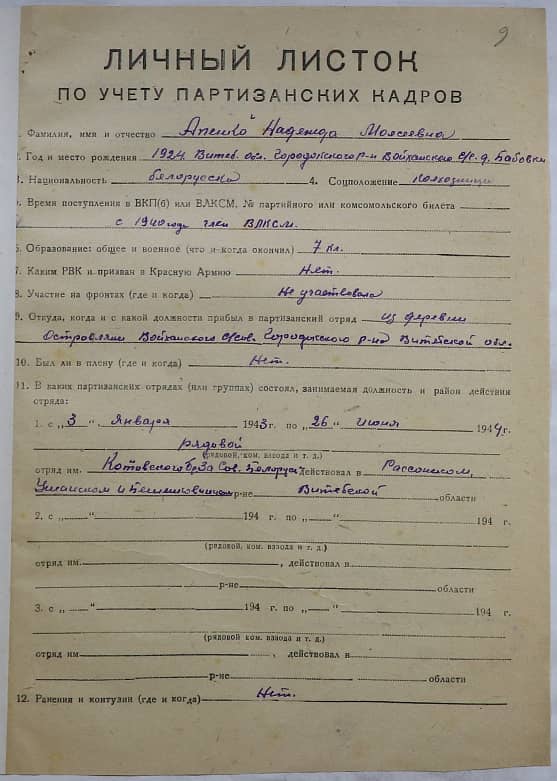 9
ЛИЧНЫЙ ЛИСТОК
ПО УЧЕТУ ПАРТИЗАНСКИХ КАДРОВ
1. Фамилия, имя и отчество Надежда Моисеевна
2. Год и место рождения 1924 Витеб. обл. Городокского р-н Войханского с/с. д. Бабовки
3. Национальность белорусска 4. Соцположение колхозница
5. Время поступления в ВКП(б) или ВЛКСМ, № партийного или комсомольского билета
с 1940 года член ВЛКСМ.
6. Образование: общее и военное (что и когда окончил) 7 кл.
7. Каким РВК и призван в Красную Армию Нет.
8. Участие на фронтах (где и когда) Не участвовала
9. Откуда, когда и с какой должности прибыл в партизанский отряд из деревни
Войханского с/сов. Городокского р-на Витебской обл.
10. Был ли в плену (где и когда) Нет.
11. В каких партизанских отрядах (или группах) состоял, занимаемая должность и район действия
отряда:
1. с „3“ января 1943 г. по „26“ июня 1944 г.
рядовой
(рядовой, ком. взвода и т. д.)
отряд им. Котовского бр. За Сов. Белорус. действовал в Россонском,
Ушачском и р-не Витебской области
2. с „ “ 194 г. по „ “ 194 г.
(рядовой, ком. взвода и т. д.)
отряд им. , действовал в
р-не области
3. с „ “ 194 г. по „ “ 194 г.
(рядовой ком. взвода и т. д.)
отряд им , действовал в
р-не области
12. Ранения и контузии (где и когда) Нет.